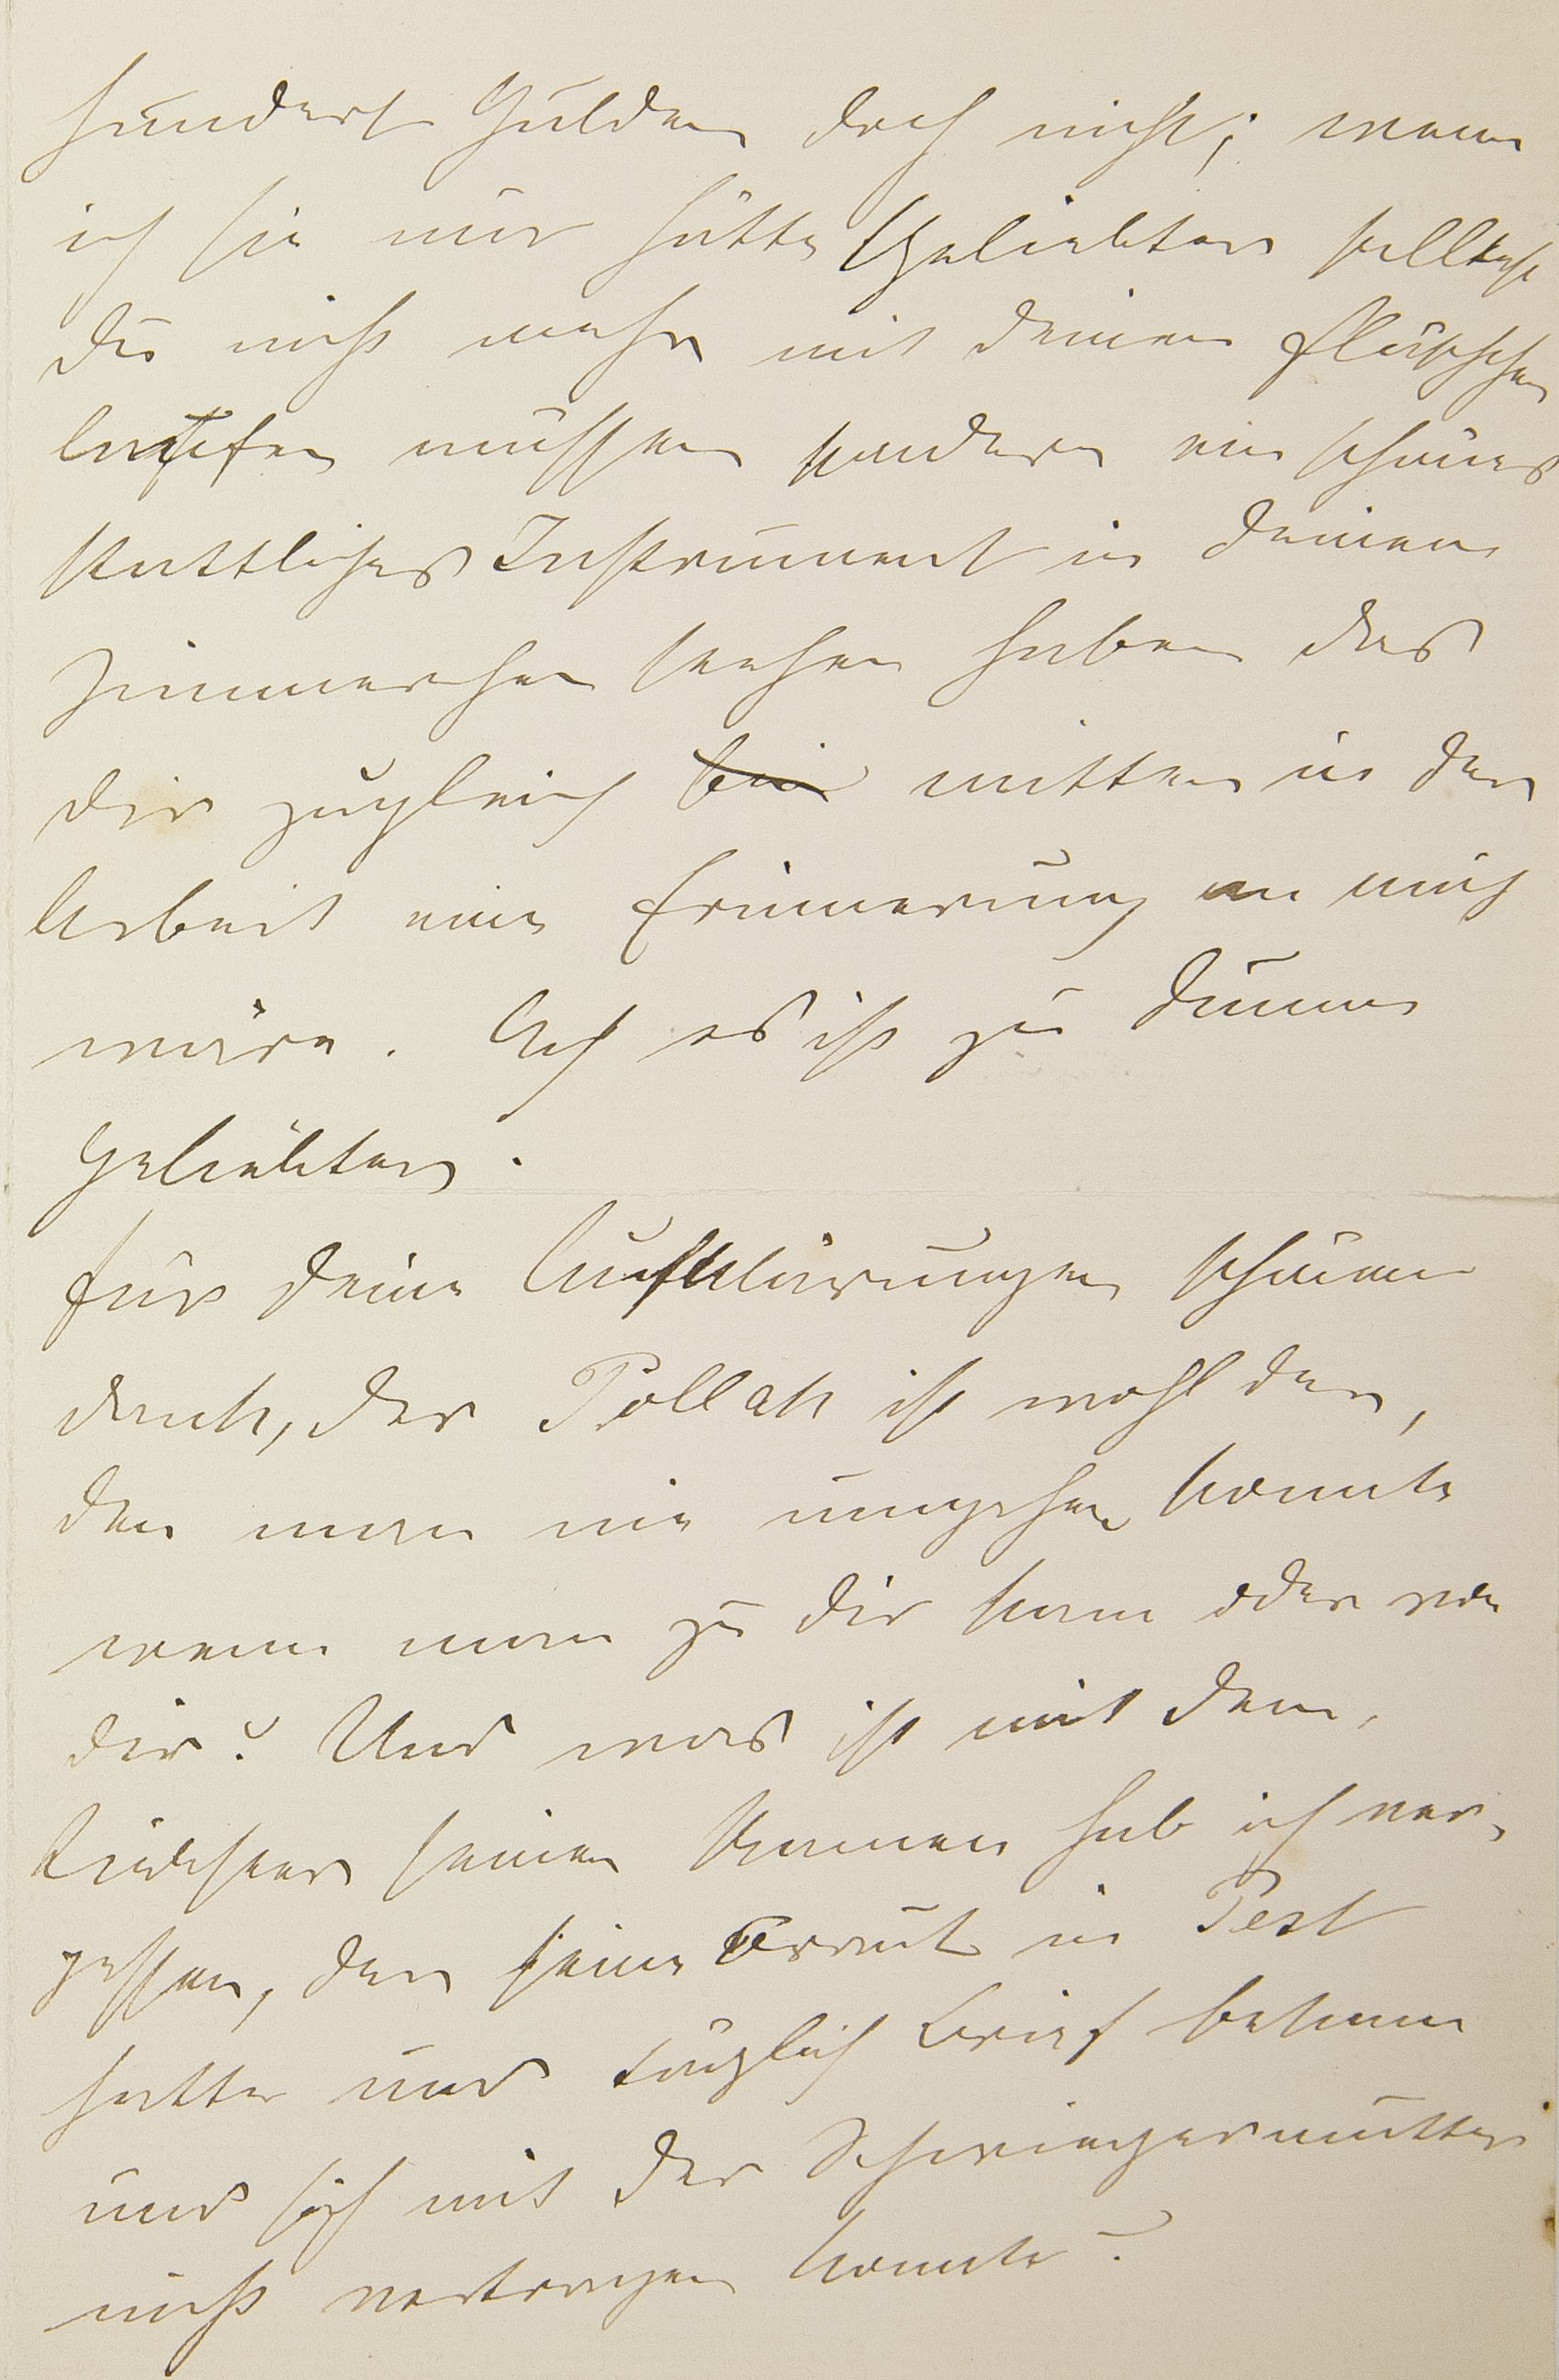 hundert Gulden doch nicht; wenn
ich sie nur hätte Geliebter solltest
du nicht mehr mit deinen Fläschchen
müssen sondern ein schönes
stattliches Instrument in deinem
Zimmerchen stehen haben das
dir zugleich bei mitten in der
Arbeit eine Erinnerung an mich
wäre. Ach es ist zu dumm
Geliebter.
Für deine Aufklärungen schönen
Dank, der Pollak ist wohl der,
den man nie umgehen konnte
wenn man zu dir kam oder von
dir? Und was ist mit dem,
seinen Namen hab ich ver-
gessen, der seine Braut in Pest
hatte und täglich Brief bekam
und sich mit der Schwiegermutter
nicht vertragen konnte?